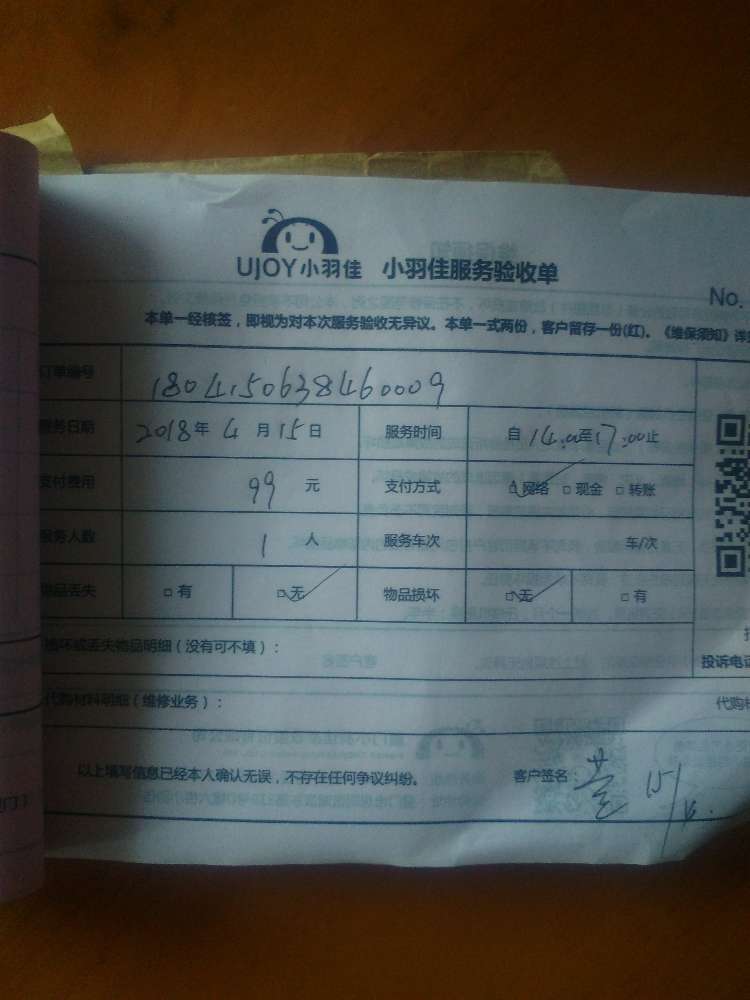 UJOY小羽佳 小羽佳服务验收单
No.
本单一经核签，即视为对本次服务验收无异议。本单一式两份，客户留存一份(红)。《维保须知》详
订单编号 1804150638460009
服务日期 2018年 4月 15日 服务时间 自 14:00至17:00止
支付费用 99 元 支付方式 网络 现金 转账
服务人数 1 人 服务车次 车/次
物品丢失 有 无 物品损坏 无 有
损坏或丢失物品明细（没有可不填）：
投诉电话
代购材料明细（维修业务）： 代购材
以上填写信息已经本人确认无误，不存在任何争议纠纷。 客户签名：